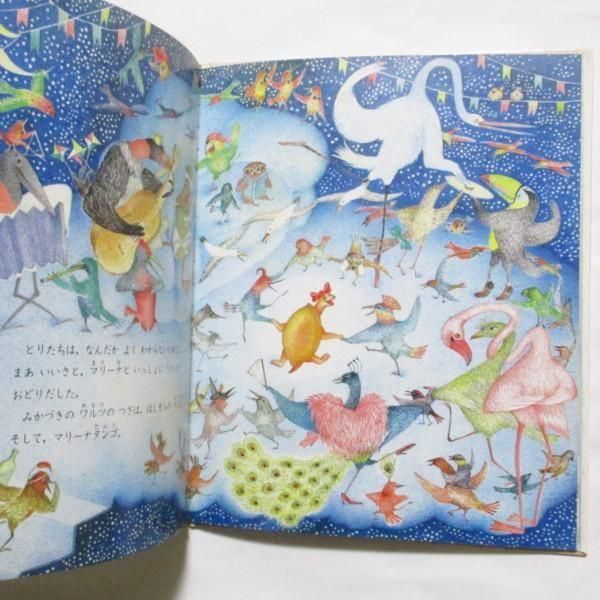 とりたちは、なんだか よく わからない
まあ いいさと、マリーナと いっしょに
おどりだした。
みかづきの ワルツの つぎは、ほしぞらの
そして、マリーナタンゴ。